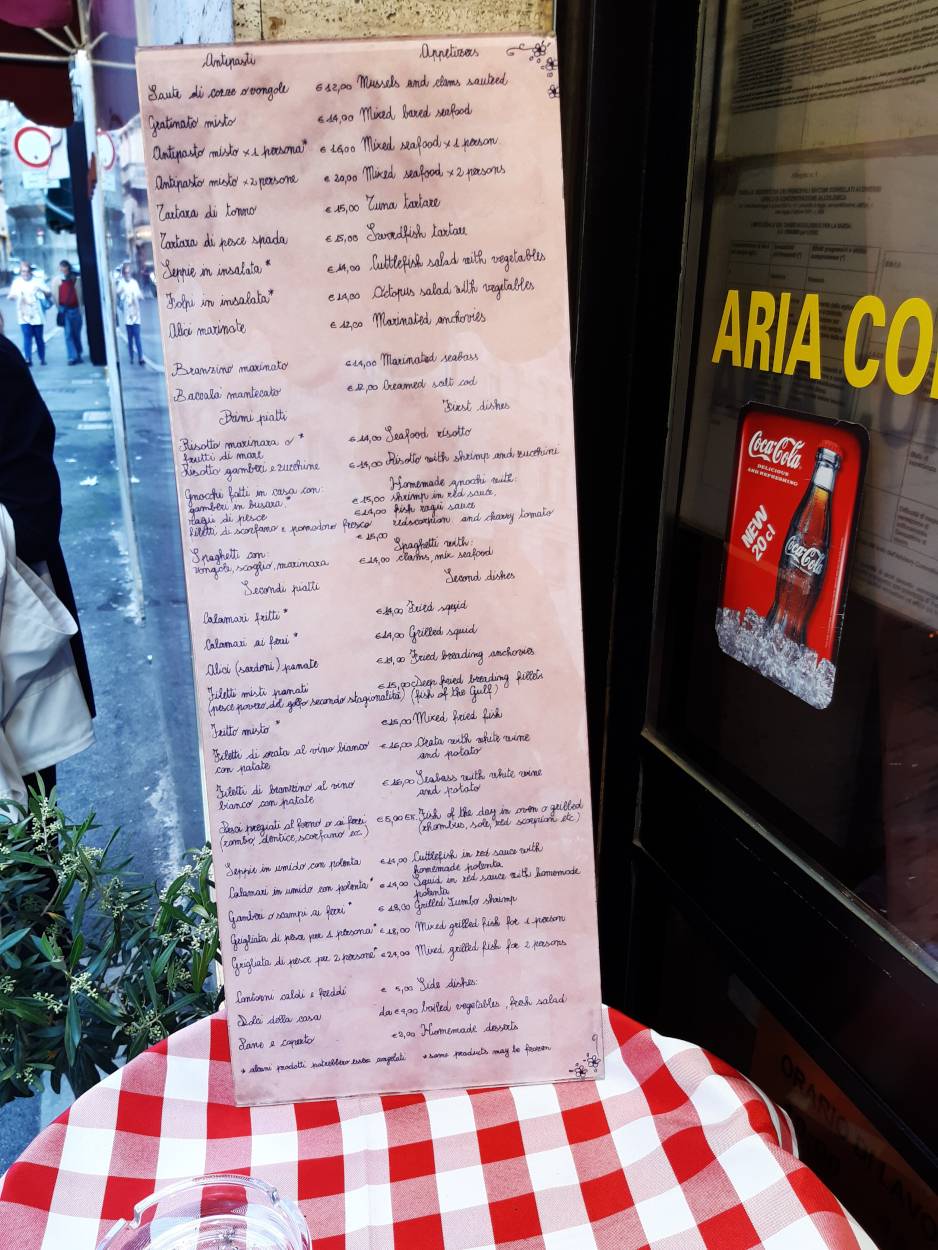 Antipasti Appetizers
Saute di cozze o vongole € 12,00 Mussels and clams sauteed
Gratinato misto € 14,00 Mixed bared seafood
Antipasto misto x 1 persona* € 16,00 Mixed seafood x 1 person
Antipasto misto x 2 persone € 20,00 Mixed seafood x 2 persons
Tartara di tonno € 15,00 Tuna tartare
Tartara di pesce spada € 15,00 Swordfish tartare
Seppie in insalata * € 14,00 Cuttlefish salad with vegetables
Folpi in insalata* € 14,00 Octopus salad with vegetables
Alici marinate € 12,00 Marinated anchovies
Branzino marinato € 14,00 Marinated seabass
Baccala' mantecato € 12,00 Creamed salt cod
Primi piatti First dishes
Risotto marinara o * € 14,00 Seafood risotto
frutti di mare
Risotto gamberi e zucchine € 14,00 Risotto with shrimp and zucchini
Gnocchi fatti in casa con: Homemade gnocchi with:
gamberi in busara* € 15,00 shrimp in red sauce,
ragù di pesce € 14,00 fish ragù sauce
filetti di scorfano e pomodoro fresco € 15,00 redscorpion and charry tomato
Spaghetti con: Spaghetti with:
vongole, scoglio, marinara € 14,00 clams, mix seafood
Secondi piatti Second dishes
Calamari fritti * € 14,00 Fried squid
Calamari ai ferri * € 14,00 Grilled squid
Alici (sardoni) panate € 14,00 Fried breading anchovies
Filetti misti panati € 15,00 Deep fried breading fillets
(pesce povero del golfo secondo stagionalità) (fish of the Gulf)
Fritto misto * € 15,00 Mixed fried fish
Filetti di orata al vino bianco € 16,00 Orata with white wine
con patate and potato
Filetti di branzino al vino € 16,00 Seabass with white wine
bianco con patate and potato
Pesci pregiati al forno o ai ferri € 5,00 Fish of the day in oven o grilled
(rombo, dentice, scorfano ec.) (rhombus, sole, red scorpion etc)
Seppie in umido con polenta € 14,00 Cuttlefish in red sauce with
homemade polenta
Calamari in umido con polenta* € 14,00 Squid in red sauce with homemade
polenta
Gamberi o scampi ai ferri * € 18,00 Grilled Jumbo shrimp
Grigliata di pesce per 1 persona* € 18,00 Mixed grilled fish for 1 person
Grigliata di pesce per 2 persone* € 24,00 Mixed grilled fish for 2 persons
Contorni caldi e freddi € 5,00 Side dishes:
Dolci della casa da € 4,00 boiled vegetables, fresh salad
Pane e coperto € 2,00 Homemade desserts
* alcuni prodotti potrebbero essere congelati * some products may be frozen
ARIA CO
Coca-Cola
DELICIOUS
AND REFRESHING
NEW
20 cl
Coca-Cola
ORARIO DI LAVO